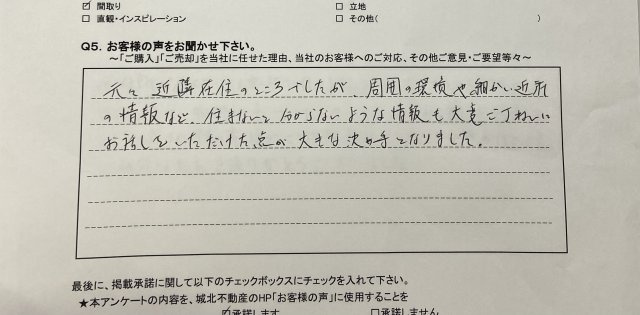 ☑ 間取り □ 立地
□ 直観・インスピレーション □ その他( )
Q5. お客様の声をお聞かせ下さい。
~「ご購入」「ご売却」を当社に任せた理由、当社のお客様へのご対応、その他ご意見・ご要望等々~
元々 近隣在住のところでしたが、周囲の環境や細かい近所
の情報など、住まないと分からないような情報も大変ご丁ねいに
お話しをいただけた点が大きな決め手となりました。
最後に、掲載承諾に関して以下のチェックボックスにチェックを入れて下さい。
★本アンケートの内容を、城北不動産のHP「お客様の声」に使用することを
☑承諾します □承諾しません